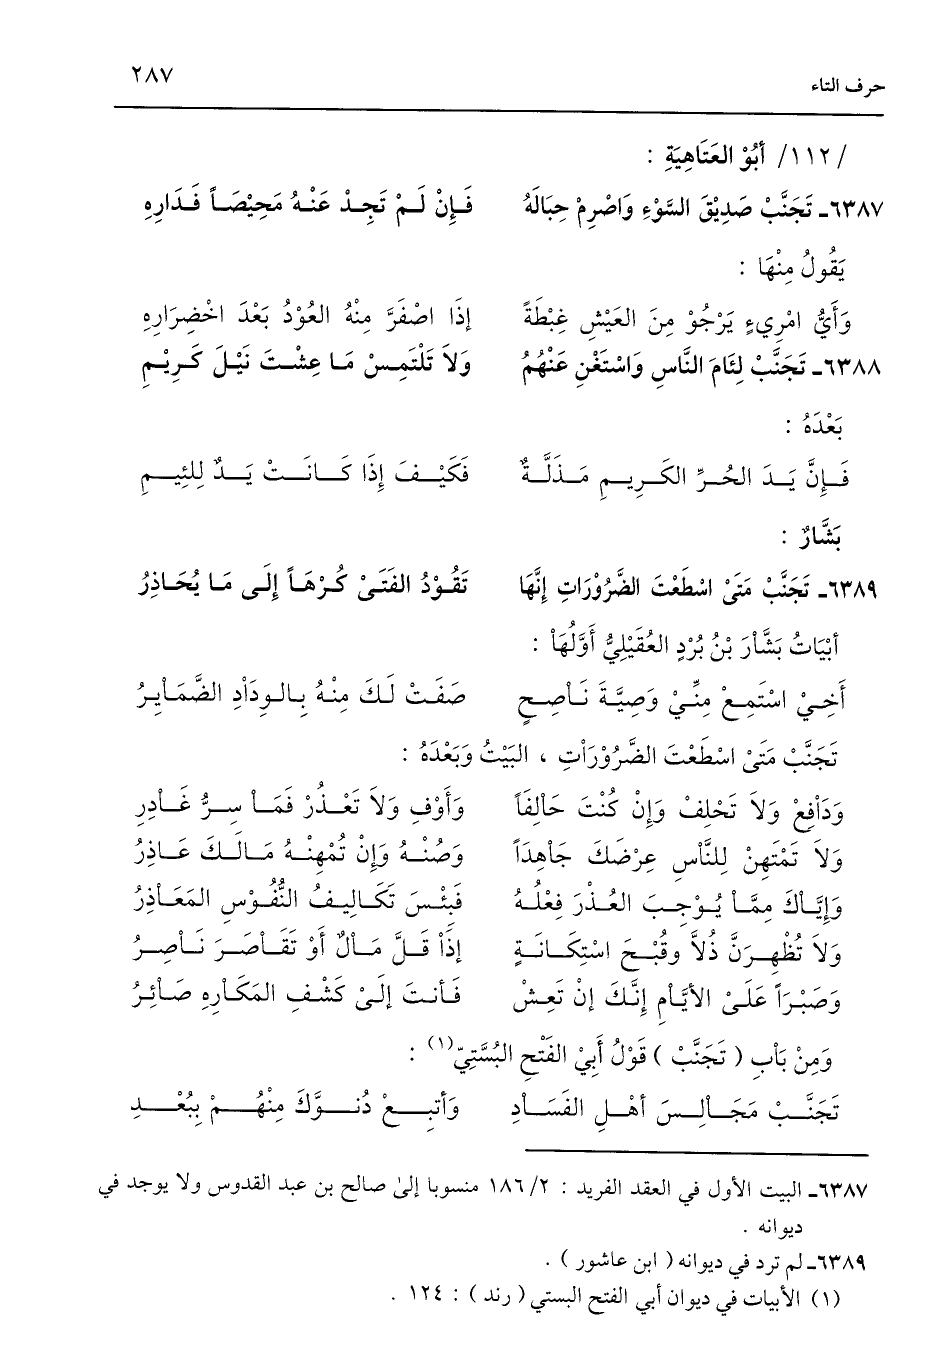 حرف التاء ٢٨٧
/١١٢/ أَبُوْ العَتَاهِيَةِ :
٦٣٨٧ـ تَجَنَّبْ صَدِيْقَ السَّوْءِ وَاصْرِمْ حِبَالَهُ فَإِنْ لَمْ تَجِدْ عَنْهُ مَحِيْصَاً فَدَارِهِ
يَقُولُ مِنْهَا :
وَأَيُّ امْرِيءٍ يَرْجُوْ مِنَ العَيْشِ غِبْطَةً إِذَا اصْفَرَّ مِنْهُ العُوْدُ بَعْدَ اخْضِرَارِهِ
٦٣٨٨ـ تَجَنَّبْ لِئَامَ النَّاسِ وَاسْتَغْنِ عَنْهُمُ وَلاَ تَلْتَمِسْ مَا عِشْتَ نَيْلَ كَرِيْمِ
بَعْدَهُ :
فَإِنَّ يَدَ الحُرِّ الكَرِيمِ مَذَلَّةٌ فَكَيْفَ إِذَا كَانَتْ يَدٌ لِلئِيمِ
بَشَّارٌ :
٦٣٨٩ـ تَجَنَّبْ مَتَىْ اسْطَعْتَ الضَّرُوْرَاتِ إِنَّهَا تَقُوْدُ الفَتَىْ كُرْهَاً إِلَى مَا يُحَاذِرُ
أَبْيَاتُ بَشَّارَ بْنُ بُرْدٍ العُقَيْلِيُّ أَوَّلُهَاْ :
أَخِيْ اسْتَمِعْ مِنِّيْ وَصِيَّةَ نَاْصِحٍ صَفَتْ لَكَ مِنْهُ بِالوِدَاْدِ الضَّمَايِرُ
تَجَنَّبْ مَتَىْ اسْطَعْتَ الضَّرُوْرَاْتِ ، البَيْتُ وَبَعْدَهُ :
وَدَاْفِعْ وَلاَ تَحْلِفْ وَإِنْ كُنْتَ حَاْلِفَاً وَأَوْفِ وَلاَ تَعْذُرْ فَمَاْ سِرُّ غَاْدِرِ
وَلاَ تَمْتَهِنْ لِلنَّاْسِ عِرْضَكَ جَاْهِدَاً وَصُنْهُ وَإِنْ تُمْهِنْهُ مَالَكَ عَاذِرُ
وَإِيَّاْكَ مِمَّاْ يُوْجِبَ العُذْرَ فِعْلُهُ فَبِئْسَ تَكَالِيفُ النُّفُوْسِ المَعَاْذِرُ
وَلاَ تُظْهِرَنَّ ذُلاًّ وقُبْحَ اسْتِكَانَةٍ إِذَاْ قَلَّ مَاْلٌ أَوْ تَقَاْصَرَ نَاْصِرُ
وَصَبْرَاً عَلَىْ الأَيَّاْمِ إِنَّكَ إِنْ تَعِشْ فَأَنتَ إِلَىْ كَشْفِ المَكَارِهِ صَاْئِرُ
وَمِنْ بَاْبِ ( تَجَنَّبْ ) قَوْلُ أَبِيْ الفَتْحِ البُسْتِيّ(١) :
تَجَنَّبْ مَجَاْلِسَ أَهْلِ الفَسَادِ وَأَتبِعْ دُنُوَّكَ مِنْهُمْ بِبُعْدِ
٦٣٨٧ـ البيت الأول في العقد الفريد : ٢/ ١٨٦ منسوبا إلىٰ صالح بن عبد القدوس ولا يوجد في
ديوانه .
٦٣٨٩ـ لم ترد في ديوانه ( ابن عاشور ) .
(١) الأبيات في ديوان أبي الفتح البستي ( رند ) : ١٢٤ .